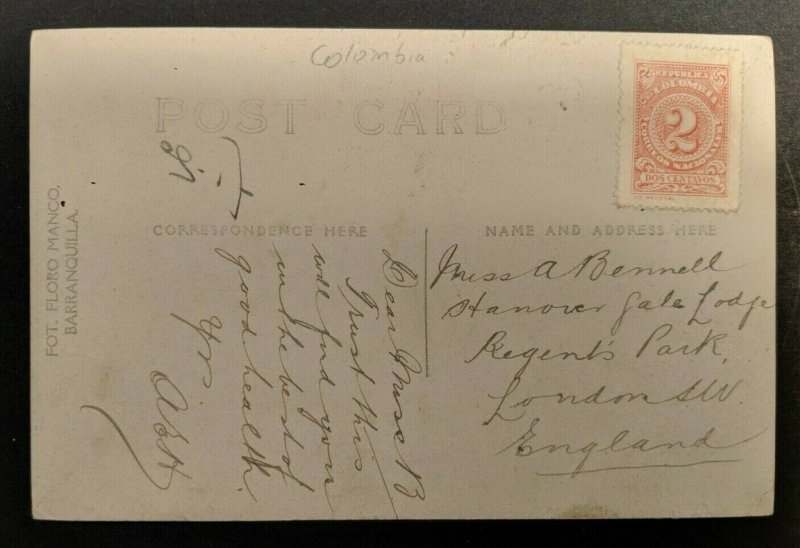 Colombia
POST CARD
FOT. FLORO MANCO.
BARRANQUILLA.
CORRESPONDENCE HERE
NAME AND ADDRESS HERE
REPUBLICA
DE COLOMBIA
2
CORREOS NACIONALES
DOS CENTAVOS
Dear Miss B
Trust this
will find you
in the best of
good health.
Yrs.
Miss A Bennell
Hanover Gate Lodge
Regent's Park,
London
England